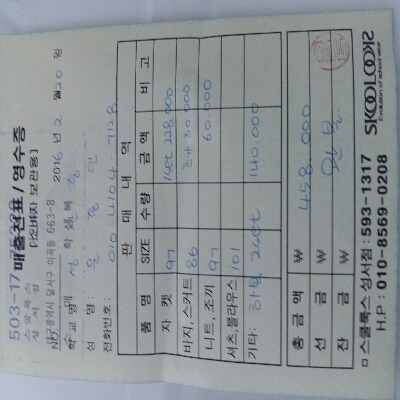 매출전표 / 영수증
[소비자 보관용]
2016년 2월 20일
NO.
대구광역시 달서구 이곡동 663-8
학교명:
성 명:
전화번호: 010 4104 7128
판 매 내 역
품 명 SIZE 수량 금 액 비 고
자 켓 97 1set 228.000
바지, 스커트 86 추가 30.000
니트, 조끼 97 60.000
셔츠,블라우스 101
기타: 하복 2set 140.000
총 금 액 ₩ 458.000
선 금 ₩ 완불
잔 금 ₩
스쿨룩스 성서점 : 593-1317
H.P : 010-8569-0208
SKOOLOOKS
Evolution of school wear